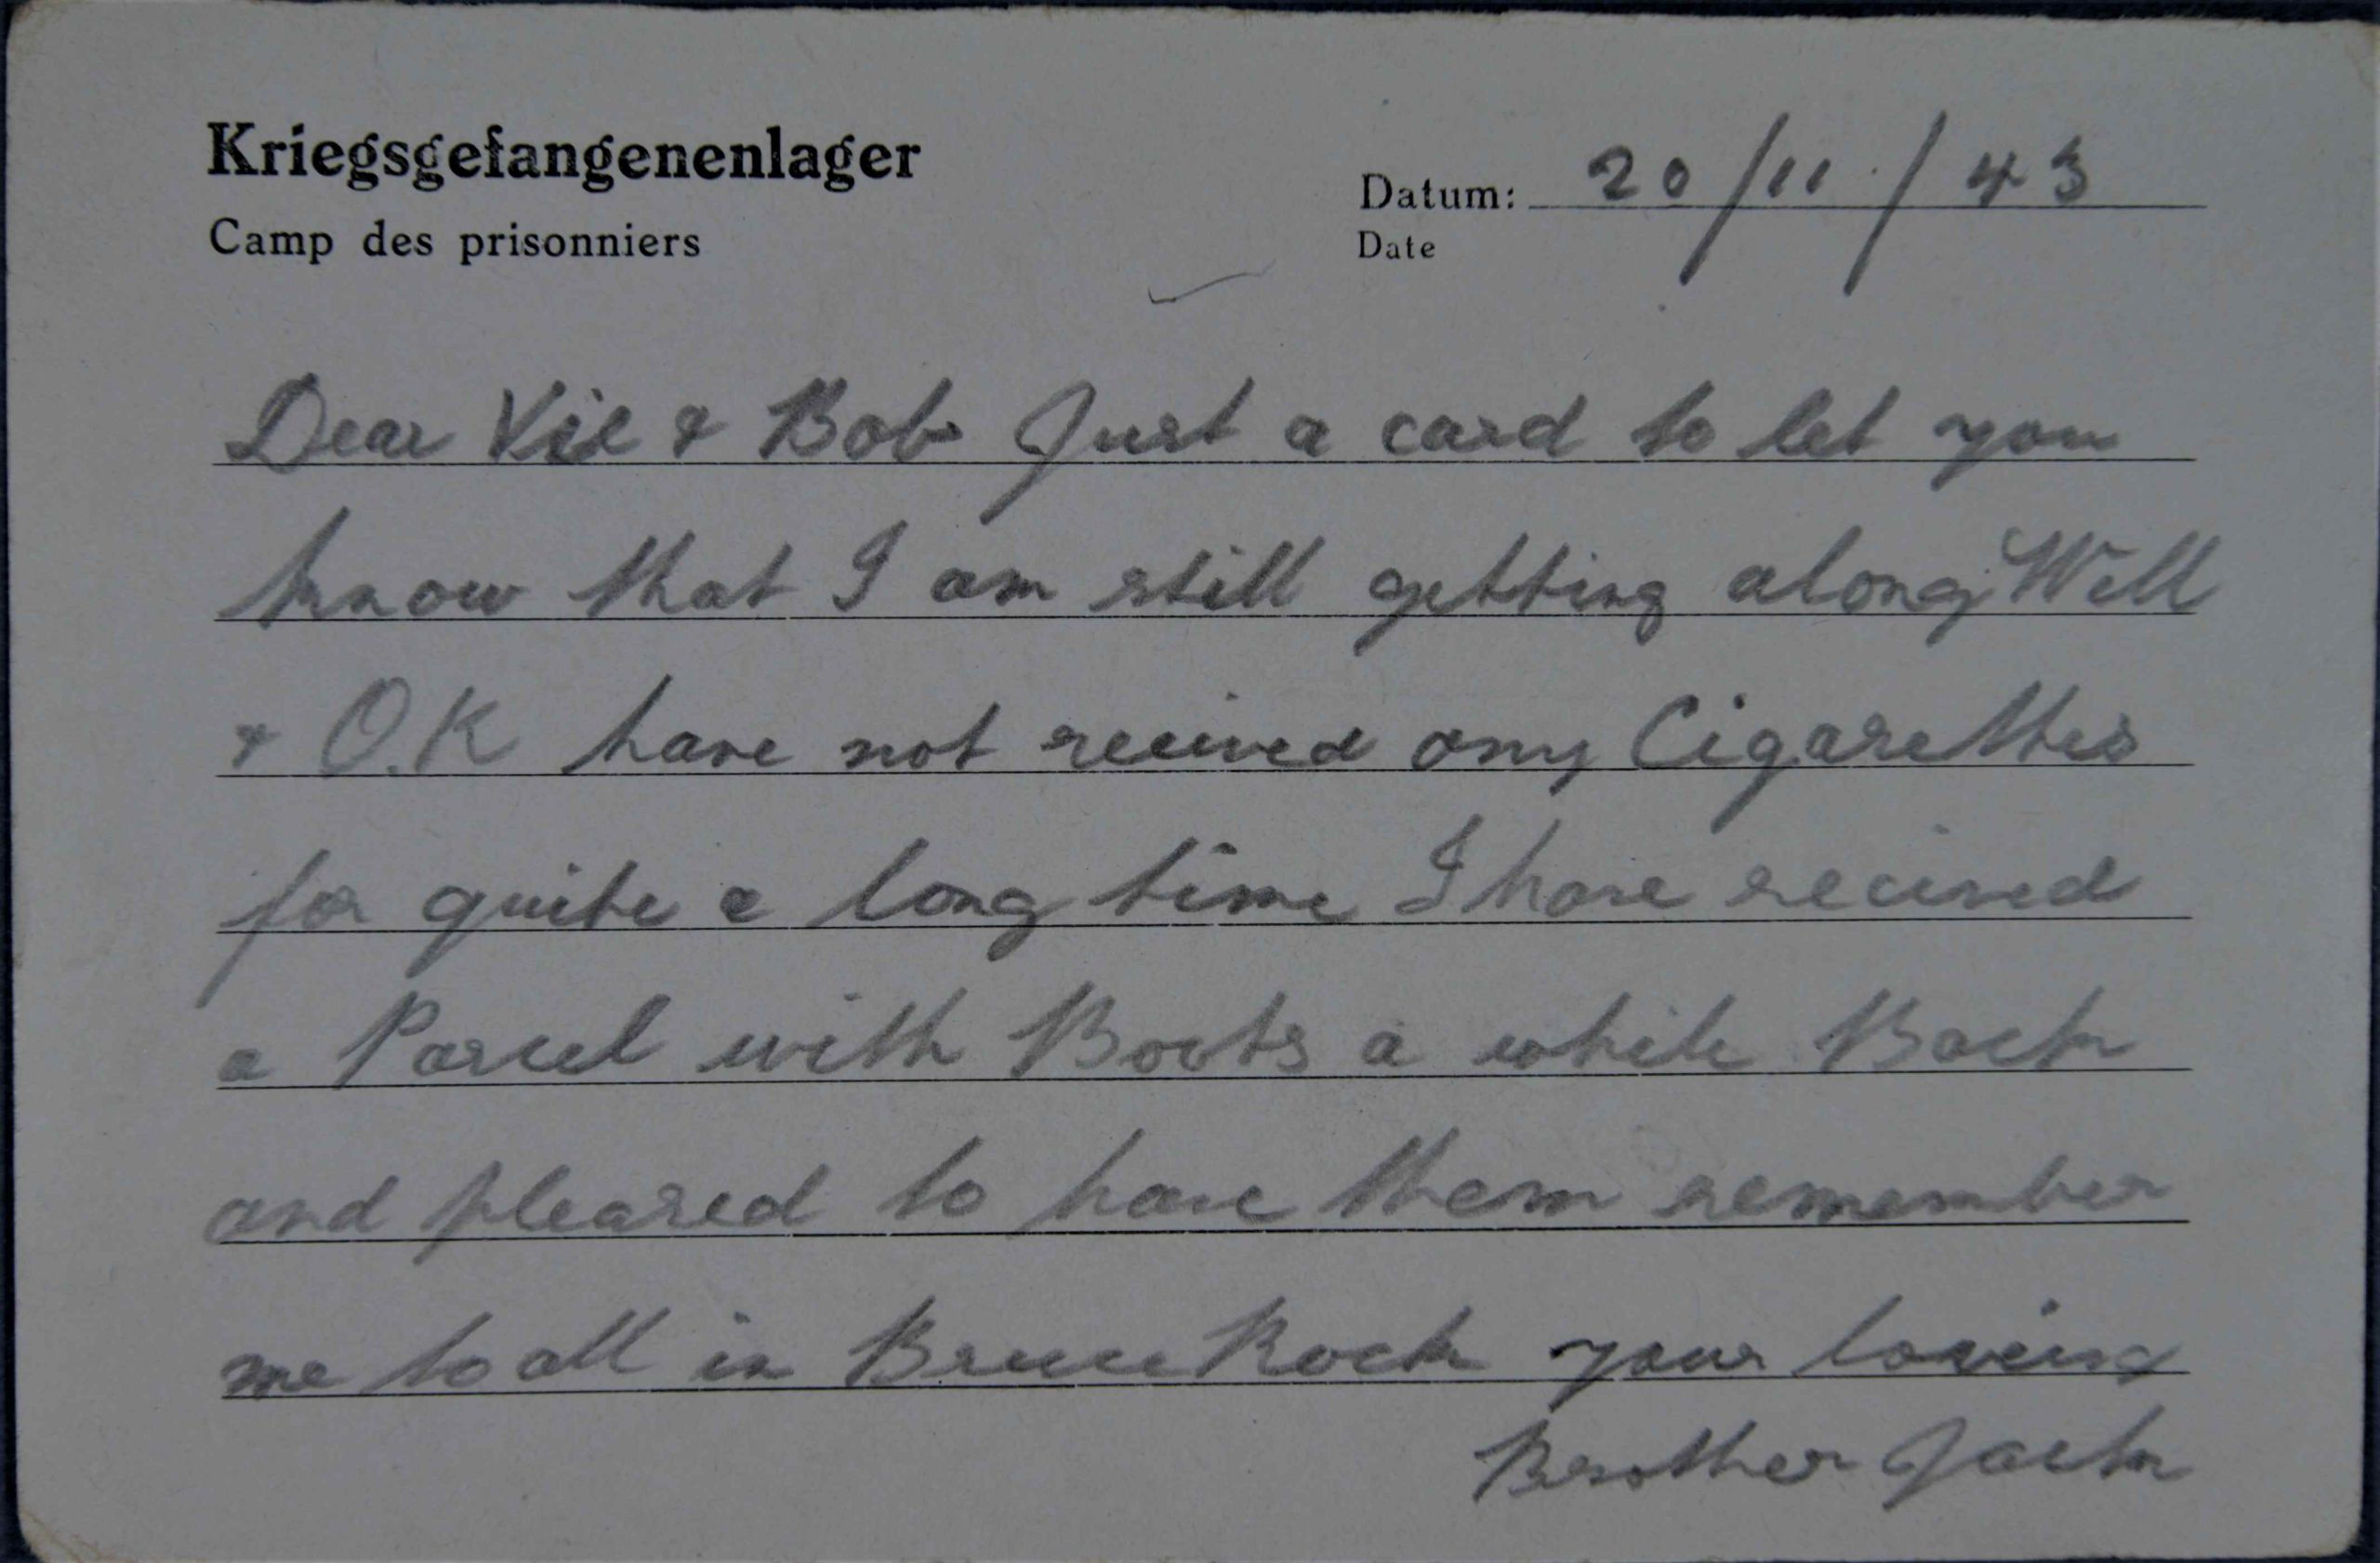 Kriegsgefangenenlager
Camp des prisonniers
Datum: 20/11/43
Date
Dear Vic & Bob Just a card to let you
know that I am still getting along Well
& O.K have not recived any Cigarettes
for quite a long time I have recived
a Parcel with Boots a while Back
and pleased to have them remember
me to all in Bruce Rock your loving
Brother Jack